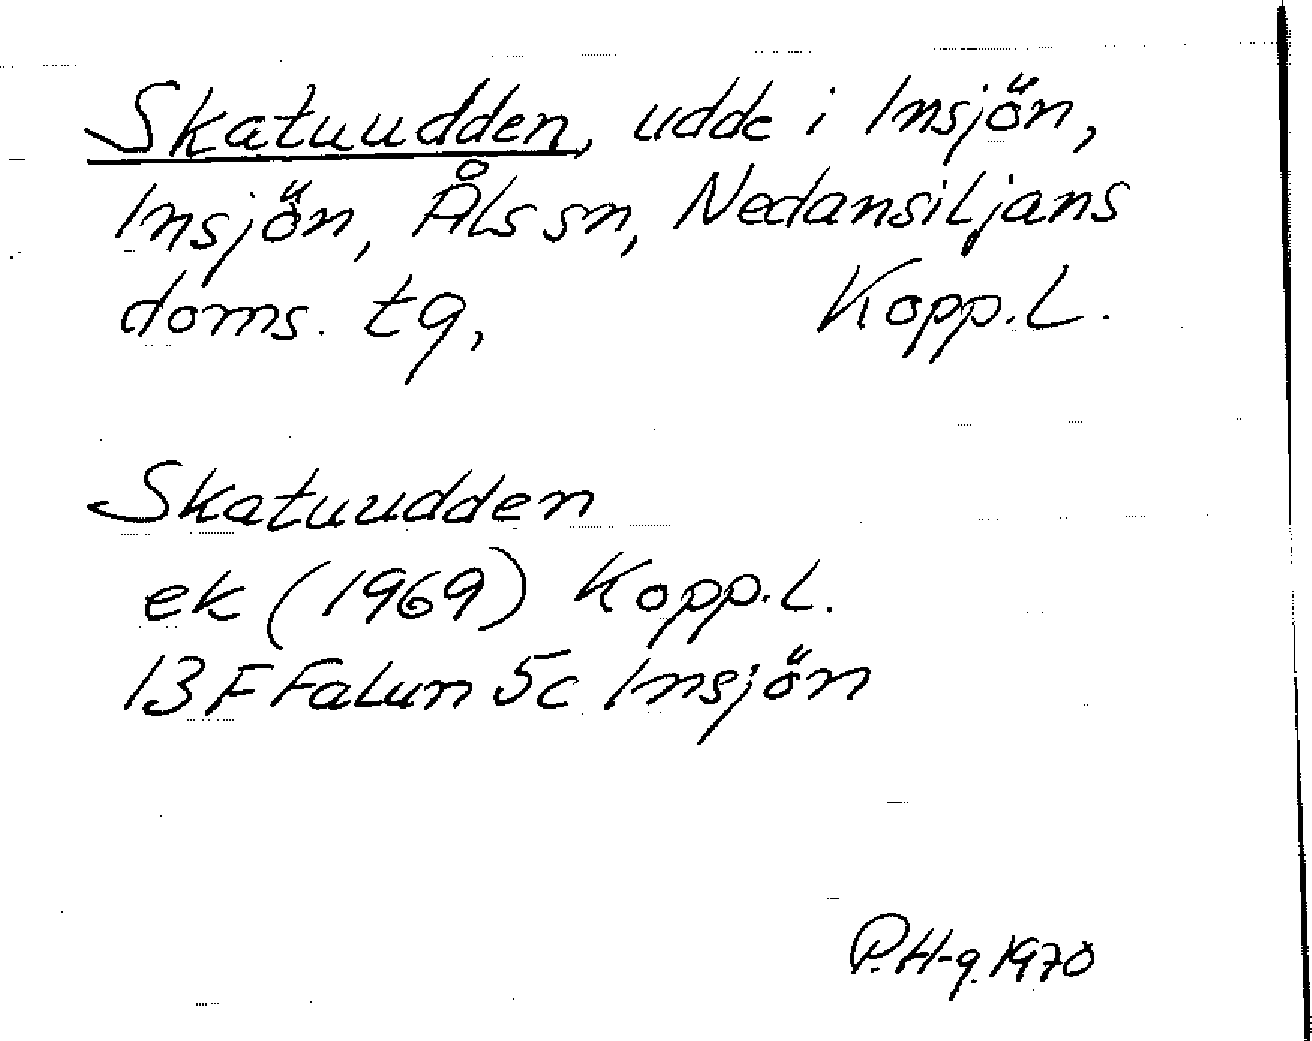 Skatuudden, udde i Insjön,
Insjön, Åls sn, Nedansiljans
doms. tg, Kopp. L.
Skatuudden
ek (1969) Kopp. L.
13 F Falun 5c Insjön
P.H-g. 1970